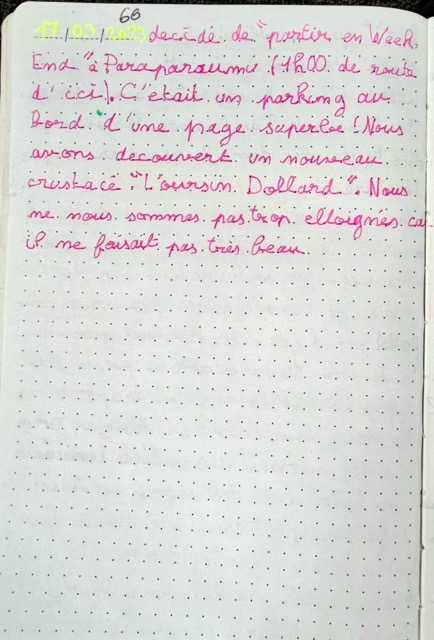 66
17/03/2023 decidé de "partir en Week.
End" à Paraparaumu (1h00 de route
d'ici). C'était un parking au
bord d'une page superbe ! Nous
avons decouvert un nouveau
crustacé "L'oursin Dollard". Nous
ne nous sommes pas trop elloignes car
il ne faisait pas très beau.